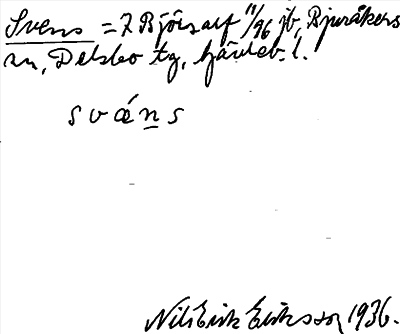 Svens = 7 Björsarf 11/96 jb, Bjuråkers
sn, Delsbo tg, Gävleb. l.
sváṉs
Nils Erik Eriksson 1936.